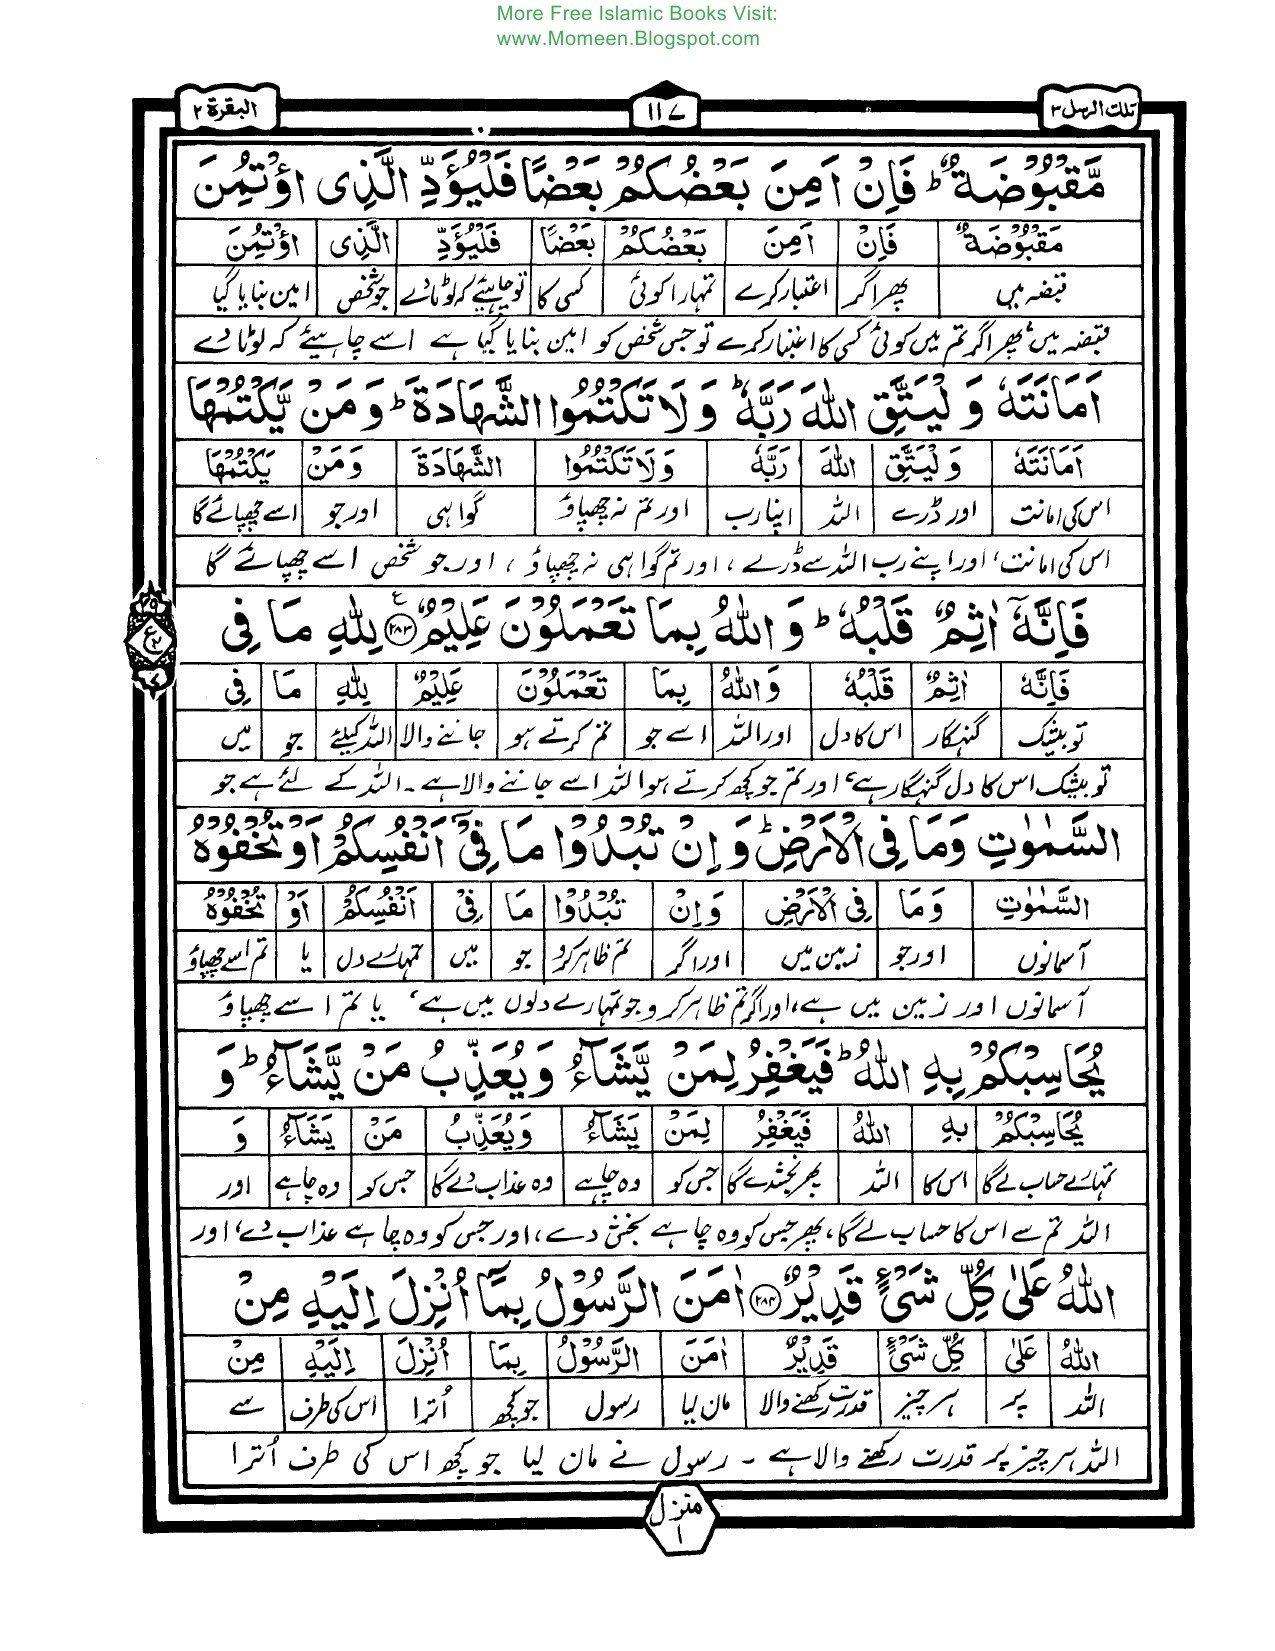 More Free Islamic Books Visit:
www.Momeen.Blogspot.com
تلك الرسل ۳ ۱۱۷ البقرة ۲
مَّقۡبُوۡضَةٌ ؕ فَاِنۡ اَمِنَ بَعۡضُكُمۡ بَعۡضًا فَلۡيُؤَدِّ الَّذِى اؤۡتُمِنَ
مَقۡبُوۡضَةٌ فَاِنۡ اَمِنَ بَعۡضُكُمۡ بَعۡضًا فَلۡيُؤَدِّ الَّذِى اؤۡتُمِنَ
قبضہ میں پھر اگر اعتبار کرے تمہارا کوئی کسی کا تو چاہیئے کہ لوٹا دے جو شخص امین بنایا گیا
قبضہ میں، پھر اگر تم میں کوئی کسی کا اعتبار کرے تو جس شخص کو امین بنایا گیا ہے اسے چاہیئے کہ لوٹا دے
اَمَانَتَهٗ وَلۡيَتَّقِ اللّٰهَ رَبَّهٗ ؕ وَلَا تَكۡتُمُوا الشَّهَادَةَ ؕ وَمَنۡ يَّكۡتُمۡهَا
اَمَانَتَهٗ وَلۡيَتَّقِ اللّٰهَ رَبَّهٗ وَلَا تَكۡتُمُوا الشَّهَادَةَ وَمَنۡ يَكۡتُمۡهَا
اس کی امانت اور ڈرے اللہ اپنا رب اور تم نہ چھپاؤ گواہی اور جو اسے چھپائے گا
اس کی امانت، اور اپنے رب اللہ سے ڈرے، اور تم گواہی نہ چھپاؤ، اور جو شخص اسے چھپائے گا
فَاِنَّهٗۤ اٰثِمٌ قَلۡبُهٗ ؕ وَاللّٰهُ بِمَا تَعۡمَلُوۡنَ عَلِيۡمٌ ۲۸۳ ع لِلّٰهِ مَا فِى
فَاِنَّهٗ اٰثِمٌ قَلۡبُهٗ وَاللّٰهُ بِمَا تَعۡمَلُوۡنَ عَلِيۡمٌ لِلّٰهِ مَا فِى
تو بیشک گنہگار اس کا دل اور اللہ اسے جو تم کرتے ہو جاننے والا اللہ کیلئے جو میں
تو بیشک اس کا دل گنہگار ہے، اور تم جو کچھ کرتے ہو اللہ اسے جاننے والا ہے۔ اللہ کے لئے ہے جو
السَّمٰوٰتِ وَمَا فِى الۡاَرۡضِ ؕ وَاِنۡ تُبۡدُوۡا مَا فِىۡۤ اَنۡفُسِكُمۡ اَوۡ تُخۡفُوۡهُ
السَّمٰوٰتِ وَمَا فِى الۡاَرۡضِ وَاِنۡ تُبۡدُوۡا مَا فِىۡ اَنۡفُسِكُمۡ اَوۡ تُخۡفُوۡهُ
آسمانوں اور جو زمین میں اور اگر تم ظاہر کرو جو میں تمہارے دل یا تم اسے چھپاؤ
آسمانوں اور زمین میں ہے، اور اگر تم ظاہر کرو جو تمہارے دلوں میں ہے، یا تم اسے چھپاؤ
يُحَاسِبۡكُمۡ بِهِ اللّٰهُ ؕ فَيَغۡفِرُ لِمَنۡ يَّشَآءُ وَيُعَذِّبُ مَنۡ يَّشَآءُ ؕ وَ
يُحَاسِبۡكُمۡ بِهِ اللّٰهُ فَيَغۡفِرُ لِمَنۡ يَّشَآءُ وَيُعَذِّبُ مَنۡ يَّشَآءُ وَ
تمہارے حساب لے گا اس کا اللہ پھر بخشدے گا جس کو وہ چاہے وہ عذاب دے گا جس کو وہ چاہے اور
اللہ تم سے اس کا حساب لے گا، پھر جس کو وہ چاہے بخش دے، اور جس کو وہ چاہے عذاب دے، اور
اللّٰهُ عَلٰى كُلِّ شَىۡءٍ قَدِيۡرٌ ۲۸۴ اٰمَنَ الرَّسُوۡلُ بِمَاۤ اُنۡزِلَ اِلَيۡهِ مِنۡ
اللّٰهُ عَلٰى كُلِّ شَىۡءٍ قَدِيۡرٌ اٰمَنَ الرَّسُوۡلُ بِمَا اُنۡزِلَ اِلَيۡهِ مِنۡ
اللہ پر ہر چیز قدرت رکھنے والا مان لیا رسول جو کچھ اُترا اس کی طرف سے
اللہ ہر چیز پر قدرت رکھنے والا ہے۔ رسول نے مان لیا جو کچھ اس کی طرف اُترا
منزل ۱